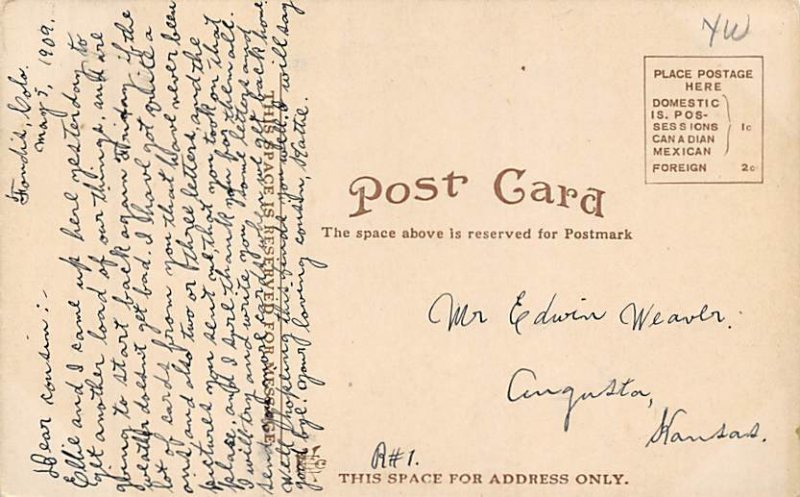 Fondis, Colo.
May 5, 1909.
Dear cousin:-
Ellie and I came up here yesterday to
get another load of our things, and are
going to start back again Friday if the
weather doesn't get bad. I have got quite a
lot of cards from you that I have never been
and also two or three letters, and the
pictures you sent me, that you took on that
place, and I sure thank you for them all.
I will try and write you some letters and
send you more cards when we get back home.
Well hoping this finds you well. I will say
good bye. Your loving cousin, Katie.
THIS SPACE IS RESERVED FOR MESSAGE
YW
PLACE POSTAGE
HERE
DOMESTIC
IS. POS-
SESSIONS 1c
CANADIAN
MEXICAN
FOREIGN 2c
Post Card
The space above is reserved for Postmark
Mr Edwin Weaver.
Augusta,
Kansas.
R#1.
THIS SPACE FOR ADDRESS ONLY.